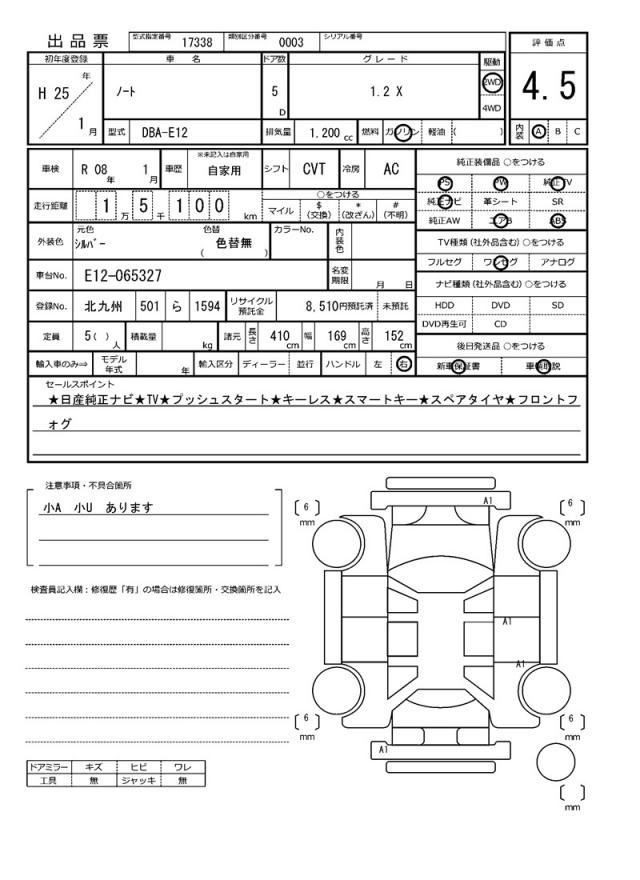 出品票
型式指定番号 17338 類別区分番号 0003 シリアル番号
初年度登録 車名 ドア数 グレード 駆動 評価点
H 25 年 1 月
ノート
5 D
1.2 X
2WD
4WD
4.5
型式 DBA-E12 排気量 1.200 cc 燃料 ガソリン 軽油 ( )
内装 A B C
車検 R 08 年 1 月 車歴 ※未記入は自家用 自家用 シフト CVT 冷房 AC
走行距離 1 万 5 千 1 0 0 km
○をつける
マイル $ (交換) * (改ざん) # (不明)
外装色 元色 シルバー 色替 ( 色替無 ) カラーNo. 内装色
車台No. E12-065327 名変期限 月 日
登録No. 北九州 501 ら 1594 リサイクル預託金 8,510円預託済 未預託
定員 5( ) 人 積載量 kg 諸元 長さ 410 cm 幅 169 cm 高さ 152 cm
輸入車のみ⇒ モデル年式 年 輸入区分 ディーラー 並行 ハンドル 左 右
純正装備品 ○をつける
PS PW 純正TV
純正ナビ 革シート SR
純正AW エアB ABS
TV種類 (社外品含む) ○をつける
フルセグ ワンセグ アナログ
ナビ種類 (社外品含む) ○をつける
HDD DVD SD
DVD再生可 CD
後日発送品 ○をつける
新車保証書 車輌取説
セールスポイント
★日産純正ナビ★TV★プッシュスタート★キーレス★スマートキー★スペアタイヤ★フロントフ
ォグ
注意事項・不具合箇所
小A 小U あります
検査員記入欄：修復歴「有」の場合は修復箇所・交換箇所を記入
ドアミラー キズ ヒビ ワレ
工具 無 ジャッキ 無
A1
〔 6 〕 mm
〔 6 〕 mm
A1
A1
〔 6 〕 mm
〔 6 〕 mm
A1
〔 〕 mm